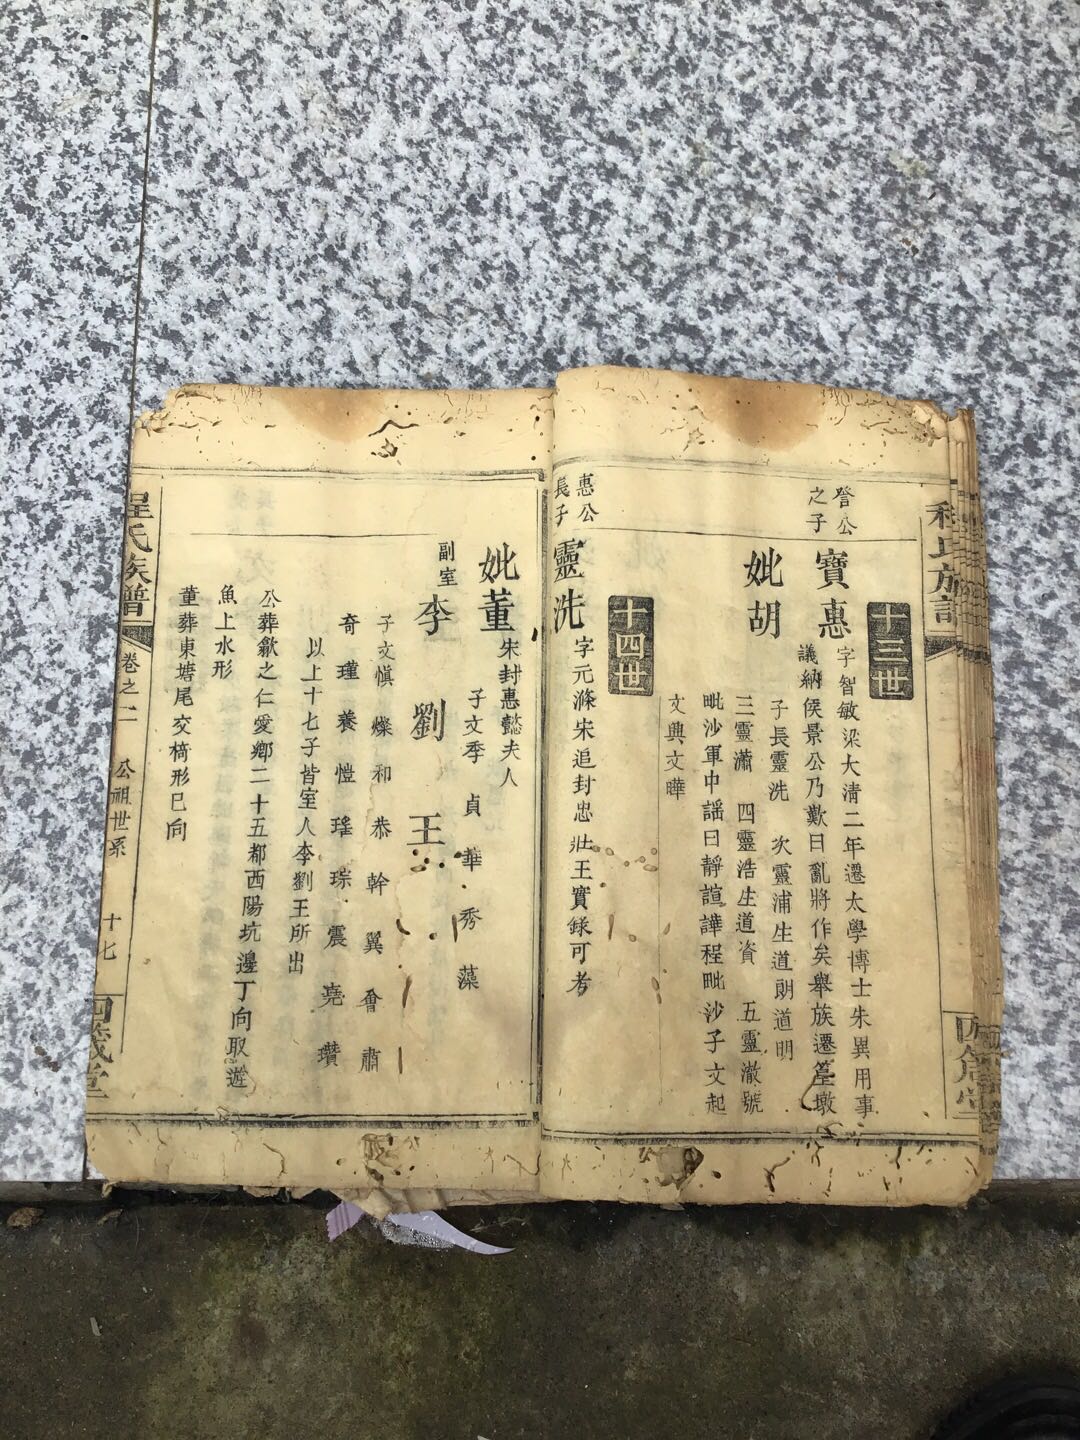 程氏族譜
十三世
督公
之子
寶惠
字智敏梁大清二年遷太學博士朱異用事
議納侯景公乃歎曰亂將作矣舉族遷篁墩
妣胡
子長靈洗 次靈浦生道朗道明
三靈瀟 四靈浩生道資 五靈澈號
毗沙軍中謡曰靜諠譁程毗沙子文起
文興文曄
十四世
惠公
長子
靈洗
字元滌宋追封忠壯王實錄可考
妣董
宋封惠懿夫人
子文季 貞 華 秀 藻
副室
李 劉 王
子文慎 燦 和 恭 幹 翼 會 肅
奇 瑾 養 愷 瑤 琮 震 堯 瓚
以上十七子皆室人李劉王所出
公葬歙之仁愛鄉二十五都西陽坑邊丁向取遊
魚上水形
董葬東塘尾交椅形巳向
程氏族譜
卷之二
公祖世系
十七